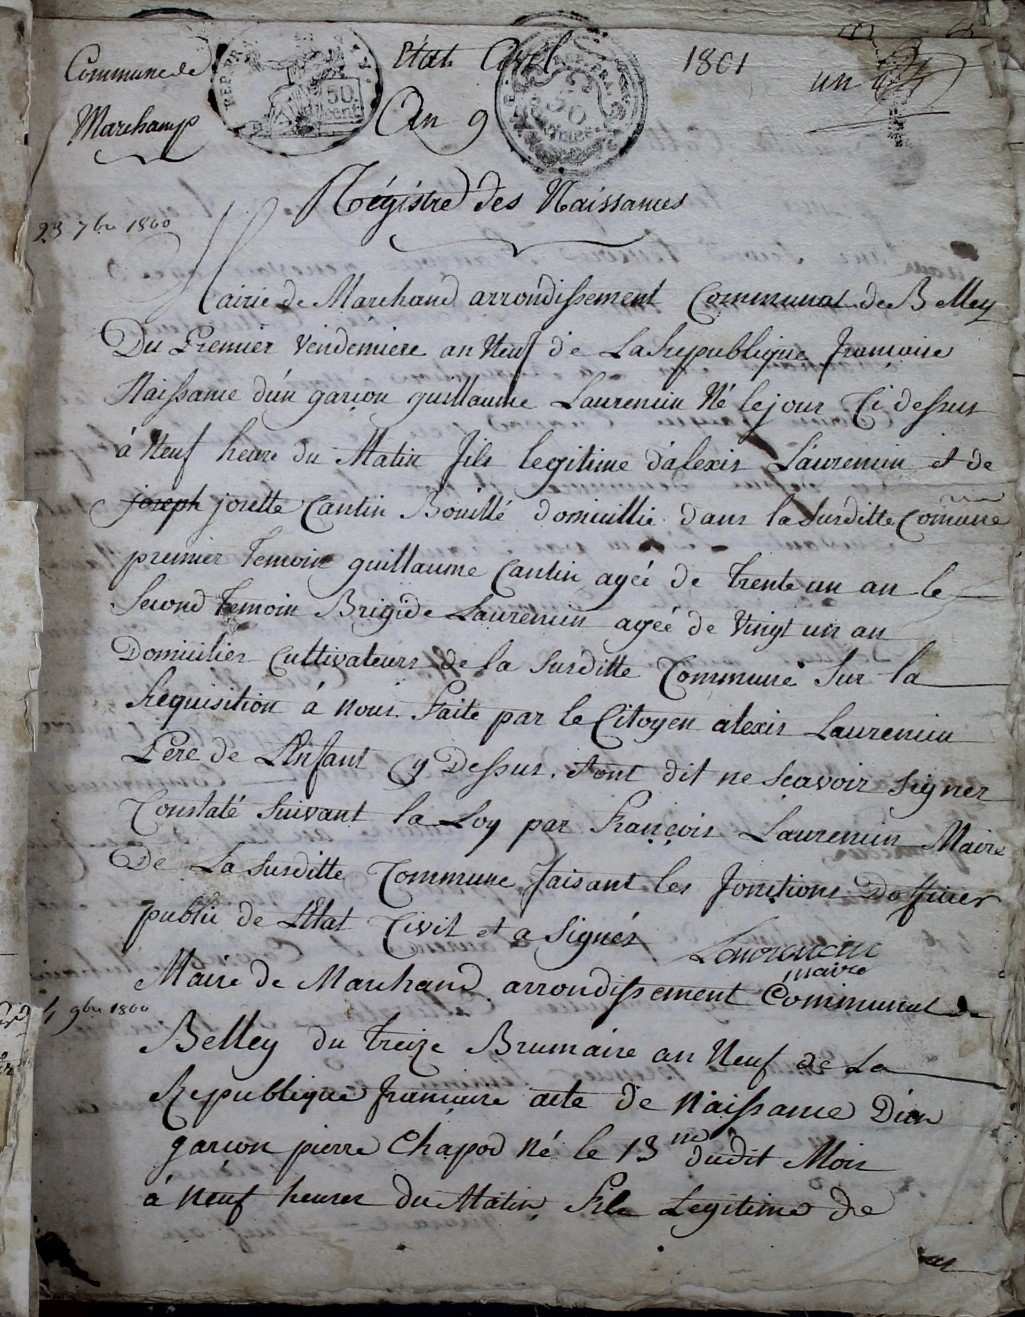 Commune de
Marchamp
état Civil
An 9
1801
un
Régistre des Naissances
23 7bre 1800
Mairie de Marchand arrondissement Communal de Belley
Du Premier vendemiere an Neuf de La Republique françoise
Naissance d'un garçon guillaume Laurencin Né le jour Ci dessus
à Neuf heure du Matin fils legitime d'alexis Laurencin et de
joseph josette Cantin Bouillé domicillié dans la susditte Comune
premier Temoin guillaume Cantin agéé de trente un an le
Second Temoin Brigide Laurencin agéé de Vingt un an
Domicilier Cultivateurs de la susditte Commune sur la
Requisition à nous faite par le Citoyen alexis Laurencin
Pere de L'Enfant Cy Dessus. ont dit ne scavoir signer
Constaté suivant la Loy par François Laurencin Maire
De La susditte Commune faisant les fonctions D'officier
public de L'Etat Civil et a signés
Laurencin
maire
4 9bre 1800
Maire de Marchand arrondissement Communal de
Belley du treize Brumaire an Neuf de La
Republique françoise acte de Naissance D'un
garçon pierre Chapod Né le 13 me dudit Mois
à Neuf heures du Matin fils Legitime de